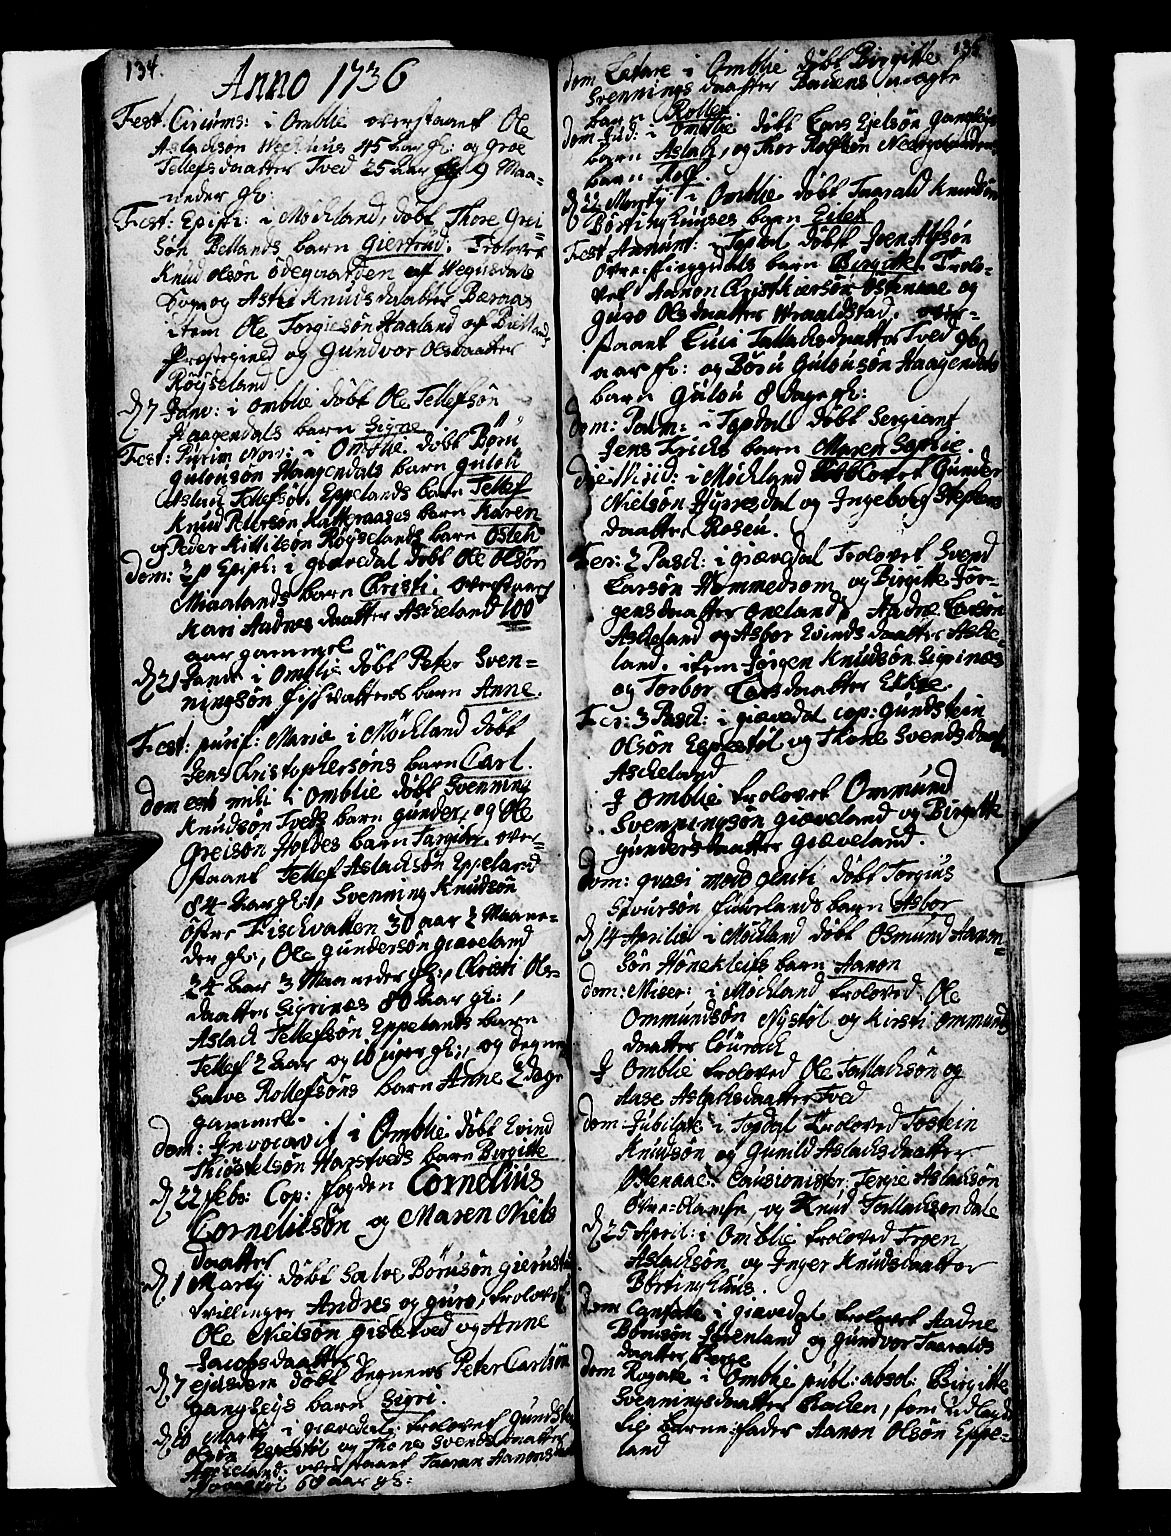 134.
Anno 1736
Fest. Circums: i Omblie overstaaet Ole
Aslachsøn Weghuus 45 aar gl: og Groe
Tellefsdaatter Tved 25 aar 9 Maa-
neder gl:
Fest: Epiph: i Möckland, döbt Thore Grei-
søn Bellands barn Giertrud. Trolovet
Knud Olsøn Ødegaarden af Wegusdals
Sogn og Astrie Knudsdaatter Beraas
item Ole Torgiesøn Haaland af Bielland
Præstegield og Gundvor Olsdaatter
Röyseland
d. 7 Janv: i Omblie döbt Ole Tellefsøn
Haagendals barn Signe
Fest: Purim Nov: i Omblie döbt Böru
Gulousøn Haagendals barn Gulou
Aslach Tellefsøn Eppelands barn Tellef
Knud Pedersøn Katteraases barn Karen
og Peder Kittilsøn Röyselands barn Osleu
dom: 2 p Epiph: i Giævedal döbt Ole Olsøn
Miaalands barn Christi. Overstaaet
Kari Aadnes daatter Ascheland 100
aar gammel
d. 21 Janv i Omblie döbt Peter Sven-
ningsøn Fischvattens barn Anne.
Fest: purif: Mariæ i Möckland döbt
Jens Christophersøns barn Carl.
dom esto mihi i Omblie döbt Svenning
Knudsøn Tveds barn Gunder, og Ole
Greisøn Holdes barn Targier. over-
staaet Tellef Aslachsøn Eppeland
84 aar gl:, Svenning Knudsøn
Öfne Fischvatten 30 aar 2 Maane-
der gl:, Ole Gundersøn Giæveland
24 aar 3 Maaneder gl:, Christi Ols-
daatter Sigrinæs 80 aar gl:,
Aslach Tellefsøn Eppelands barn
Tellef 2 aar og 10 uger gl:, og degnen
Salve Rollefsøns barn Anne 2 dage
gammel.
dom: Invocavit i Omblie döbt Evind
Thiöstelsøn Harstveds barn Birgitte
d. 22 febr: Cop: fogden Cornelius
Corneliisøn og Maren Niels
daatter
d. 1 Martij döbt Salve Börusøn Gierustads
tvillinger Andres og Guro, trolovet
Ole Nielsøn Gisletved og Anne
Jacobsdaatter
d. 7 ejusdem döbt Degnens Peter Carlsøn
Gangseijs barn Sigri.
d. 10 Martij i Giævedal: trolovet Gundsten
Olsøn Espestöl og Thone Svendsdaatter
Ascheland: overstaaet Taaran Aanonsdaatter
60 aar gl:
135
dom Lætare i Omblie döbt Birgitte
Svenningsdaatter Bachens uægte
barn Rollef
dom Jud: i Omblie döbt Lars Ejelsøn Gangseijs
barn Aslach, og Thor Rolfsøn
barn Rolf.
d. 22 Martij i Omblie döbt Taarald Knudsøn
Börtinghuuses barn Eilef
Fest Annunt: i Topdal döbt Iven Alfsøn
Övre-Lingsdals barn Birgitte. Trolo-
vet Aanon Christiversøn Ostenaae og
Guro Olsdaatter Wraaldstad. over-
staaet Live Tallachsdaatter Tved 96
aar gl: og Börü Gulousøn Haagendals
barn Gulou 8 dage gl:
dom: Palm: i Topdal döbt Sergiant
Jens Frichs barn Maren Sophie
die Virid: i Möckland trolovet Gunder
Nielsøn Hyvresdal og Ingeborg Stephens
daatter Rosen.
Fer: 2 Pasch: i Giævedal Trolovet Svend
Larsøn Hommedrom og Birgitte Jör-
gensdaatter Oneland, Aadne Larsøn
Ascheland og Asbor Evindsdaatter Asche-
land. item Jörgen Knudsøn Sigrinæs
og Torbor Larsdaatter
Fer: 3 Pasch: i Giævedal cop: Gundstein
Olsøn Espestöl og Thone Svendsdaatter
Ascheland
I Omblie trolovet Ommund
Svenningsøn Giæveland og Birgitte
Gundersdaatter Giæveland.
dom: quasi modo geniti döbt Torgius
Sivursøn Fuurlands barn Asbor
d. 14 Aprilis i Möckland döbt Osmund Aanon-
søn Hönekleifs barn Aanon
dom: Miser: i Möckland troloved Ole
Ommundsøn Nystöl og Kirsti Ommunds
daatter Löuraek
I Omblie troloved Ole Tallachsøn og
Aase Aslachsdaatter Tved
dom Jubilate i Topdal Trolovet Tostein
Knudsøn og Gunild Aslachsdaatter
Ostenaae. Causionister: Tergie Aslachsøn
Övre-Ramse, og Knud Tallachsøn dale
d. 25 April: i Omblie trolovet Troen
Aslachsøn og Inger Knudsdaatter
Börtinghuus.
dom Cantate i Giævedal trolovet Aadne
Börusøn og Gundvor Taaralds
daatter Berge
dom Rogate i Omblie publ: absol: Birgitte
Svenningsdaatter Bachen, som udlagde
til Barnefader Aanon Olsøn Eppe-
land